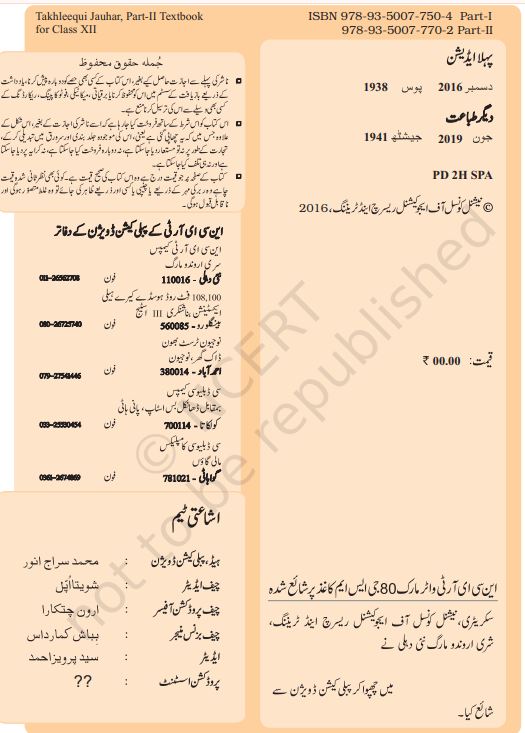 Takhleequi Jauhar, Part-II Textbook
for Class XII
ISBN 978-93-5007-750-4 Part-I
978-93-5007-770-2 Part-II
پہلا ایڈیشن
دسمبر 2016 پوس 1938
دیگر طباعت
جون 2019 جیشٹھ 1941
PD 2H SPA
© نیشنل کونسل آف ایجوکیشنل ریسرچ اینڈ ٹریننگ، 2016
قیمت: 00.00 ₹
این سی ای آر ٹی واٹر مارک 80 جی ایس ایم کاغذ پر شائع شدہ
سکریٹری، نیشنل کونسل آف ایجوکیشنل ریسرچ اینڈ ٹریننگ،
شری اروندو مارگ نئی دہلی نے
میں چھپوا کر پبلی کیشن ڈویژن سے
شائع کیا۔
جُملہ حقوق محفوظ
ناشر کی پہلے سے اجازت حاصل کیے بغیر، اس کتاب کے کسی بھی حصے کو دوبارہ پیش کرنا، یادداشت
کے ذریعے بازیافت کے سسٹم میں اس کو محفوظ کرنا یا برقیاتی، میکانیکی، فوٹو کاپینگ، ریکارڈنگ کے
کسی بھی وسیلے سے اس کی ترسیل کرنا منع ہے۔
اس کتاب کو اس شرط کے ساتھ فروخت کیا جا رہا ہے کہ اسے ناشر کی اجازت کے بغیر، اس شکل کے
علاوہ جس میں کہ یہ چھاپی گئی ہے یعنی، اس کی موجودہ جلد بندی اور سرورق میں تبدیلی کر کے،
تجارت کے طور پر نہ تو مستعار دیا جا سکتا ہے، نہ دوبارہ فروخت کیا جا سکتا ہے، نہ کرایہ پر دیا جا سکتا
ہے اور نہ ہی تلف کیا جا سکتا ہے۔
کتاب کے صفحہ پر جو قیمت درج ہے وہ اس کتاب کی صحیح قیمت ہے۔ کوئی بھی نظر ثانی شدہ قیمت
چاہے وہ ربر کی مہر کے ذریعے یا چیپی یا کسی اور ذریعے ظاہر کی جائے تو وہ غلط متصور ہوگی اور
نا قابل قبول ہوگی۔
این سی ای آر ٹی کے پبلی کیشن ڈویژن کے دفاتر
این سی ای آر ٹی کیمپس
سری اروندو مارگ
نئی دہلی - 110016 فون 011-26562708
108,100 فٹ روڈ ہوسڈے کیرے ہیلی
ایکسٹینشن بناشنکری III اسٹیج
بینگلورو - 560085 فون 080-26725740
نوجیون ٹرسٹ بھون
ڈاک گھر، نوجیون
احمد آباد - 380014 فون 079-27541446
سی ڈبلیو سی کیمپس
بمقابل ڈھانکل بس اسٹاپ، پانی ہاٹی
کولکاتا - 700114 فون 033-25530454
سی ڈبلیو سی کامپلیکس
مالی گاؤں
گواہاٹی - 781021 فون 0361-2674869
اشاعتی ٹیم
ہیڈ، پبلی کیشن ڈویژن : محمد سراج انور
چیف ایڈیٹر : شویتا اُپّل
چیف پروڈکشن آفیسر : ارون چتکارا
چیف بزنس منیجر : بباش کمار داس
ایڈیٹر : سید پرویز احمد
پروڈکشن اسسٹنٹ : ??
© NCERT
not to be republished